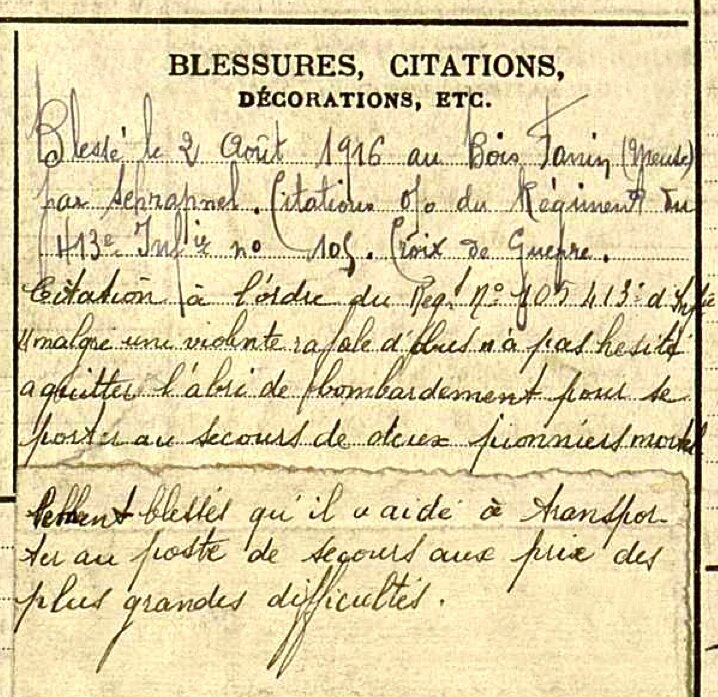 BLESSURES, CITATIONS,
DÉCORATIONS, ETC.
Blessé le 2 Août 1916 au Bois Fanin (Meuse)
par schrapnel. Citation o/o du Régiment du
413e Infie no 105. Croix de Guerre.
Citation à l'ordre du Regt No 105 413e d'Infie
"malgré une violente rafale d'obus n'a pas hesité
a quitter l'abri de bombardement pour se
porter au secours de deux pionniers mortel
lement blessés qu'il a aidé à transpor-
ter au poste de secours aux prix des
plus grandes difficultés.